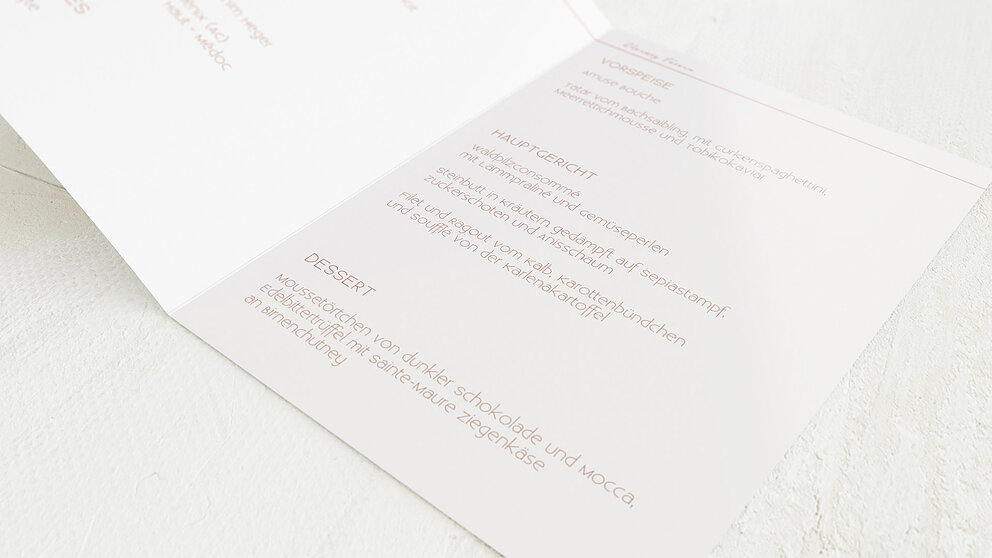 ES
Haut - Médoc
VORSPEISE
Amuse Bouche
Tatar vom Bachsaibling, mit Gurkenspaghettini,
Meerrettichmousse und Tobikokaviar
HAUPTGERICHT
Waldpilzconsommé
mit Lammpraliné und Gemüseperlen
Steinbutt in Kräutern gedämpft auf Sepiastampf,
Zuckerschoten und Anisschaum
Filet und Ragout vom Kalb, Karottenbündchen
und Soufflé von der Karlenakartoffel
DESSERT
Moussetörtchen von dunkler Schokolade und Mocca,
Edelbittertrüffel mit Sainte-Maure Ziegenkäse
an Birnenchutney